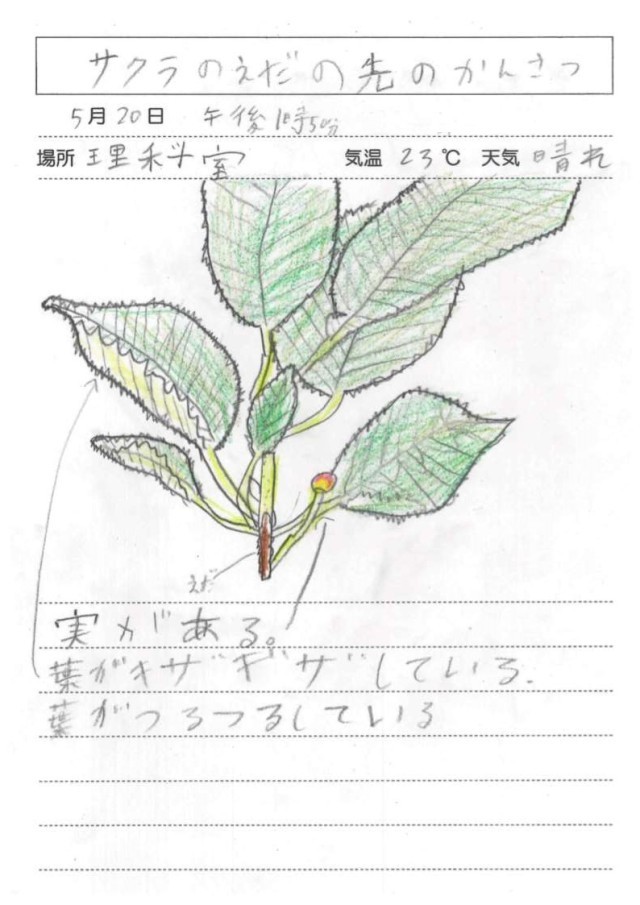 サクラのえだの先のかんさつ
5月20日 午後1時50分
場所 理科室 気温 23℃ 天気 晴れ
えだ
実がある。
葉がギザギザしている.
葉がつるつるしている